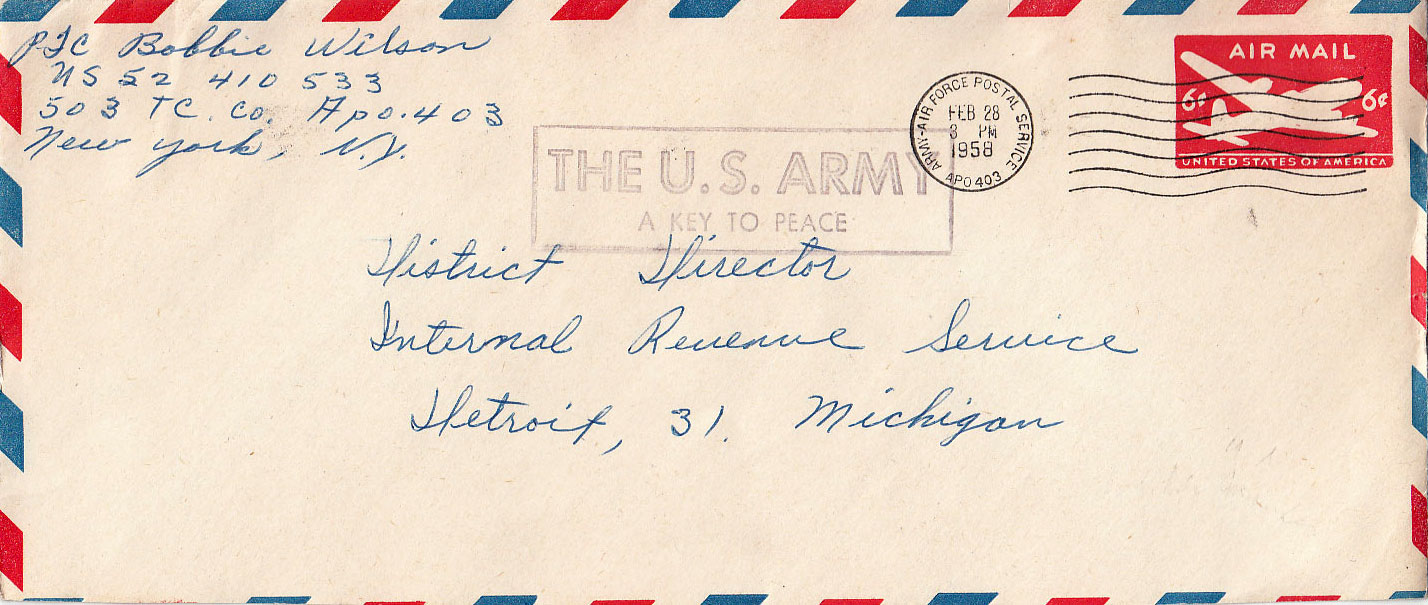 PFC Bobbie Wilson
US 52 410 533
503 TC. Co. Apo. 403
New York, N.Y.
THE U.S. ARMY
A KEY TO PEACE
ARMY-AIR FORCE POSTAL SERVICE
FEB 28
3 PM
1958
APO 403
AIR MAIL
6¢ 6¢
UNITED STATES OF AMERICA
District Director
Internal Revenue Service
Detroit, 31. Michigan